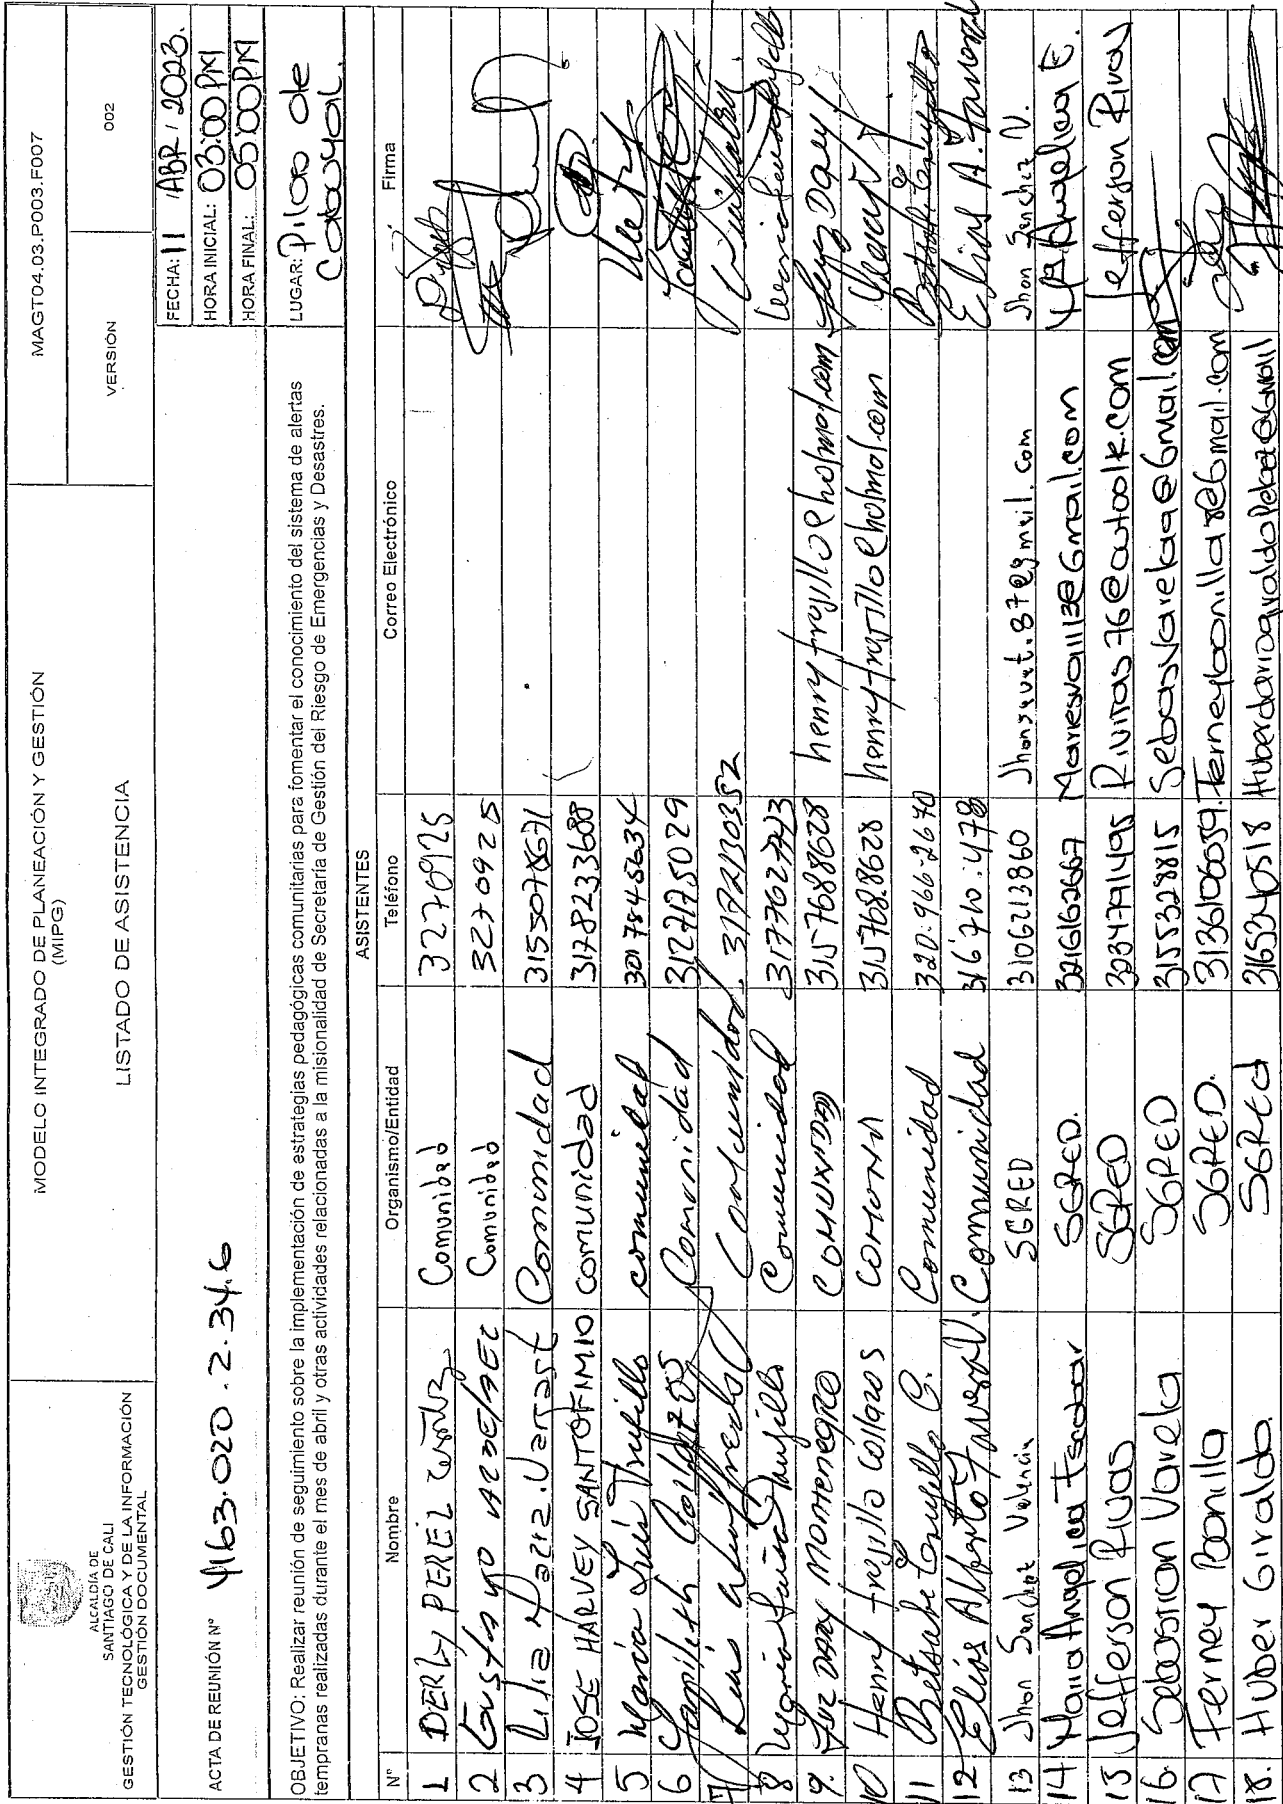 ALCALDÍA DE
SANTIAGO DE CALI
GESTIÓN TECNOLÓGICA Y DE LA INFORMACIÓN
GESTIÓN DOCUMENTAL
MODELO INTEGRADO DE PLANEACIÓN Y GESTIÓN
(MIPG)
LISTADO DE ASISTENCIA
MAGT04.03.P003.F007
VERSIÓN 002
ACTA DE REUNIÓN N° 4163.020.2.34.6
FECHA: 11 ABR / 2023.
HORA INICIAL: 03:00 PM
HORA FINAL: 05:00 PM
OBJETIVO: Realizar reunión de seguimiento sobre la implementación de estrategias pedagógicas comunitarias para fomentar el conocimiento del sistema de alertas
tempranas realizadas durante el mes de abril y otras actividades relacionadas a la misionalidad de Secretaría de Gestión del Riesgo de Emergencias y Desastres.
LUGAR: Piloto de
ASISTENTES
N° Nombre Organismo/Entidad Teléfono Correo Electrónico Firma
1 DERLY PEREZ Comunidad 3270925
2 Gustavo Comunidad 3270925
3 Lilia Comunidad
4 JOSE HARVEY SANTOFIMIO comunidad 3178233688
5 María Luis Trujillo comunidad 3017845634
6 Comunidad 3127175029
7 Luis 3172130352
8 Maria Trujillo Comunidad 3177627743
9. Luz DARY MONTENEGRO COMUNIDAD 3157688628 henrytrujillo@hotmal.com Luz Dary
10 Henry trujillo collazos 3157688628 henrytrujillo@hotmal.com
11 Betsabe C. Comunidad 320.966-2670
12 Elias Alberto Comunidad 316710:478 Elias A.
13 Jhon Sanchez Valencia SGRED 3106213860 Jhon Sanchez V.
14 Maria Angelica Escobar SGRED. 3216162667 Angelica E.
15 Jefferson Rivas SGRED 3234791495 Rivras76@outoolk.com Jefferson Rivas
16. Sebastian Varela SGRED 3155328815 Sebasvarelaa@Gmail.com
17 Ferney Bonilla SGRED. 3136106039. Ferneybonillar@Gmail.com
18. Huber Giraldo. SGRED 3165340518